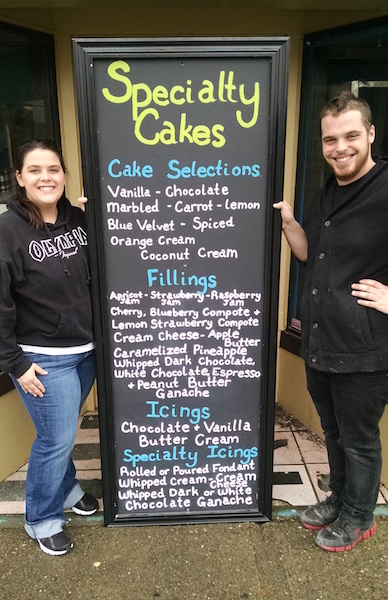 Specialty
Cakes
Cake Selections
Vanilla - Chocolate
Marbled - Carrot - lemon
Blue Velvet - Spiced
Orange Cream
Coconut Cream
Fillings
Apricot - Strawberry - Raspberry
Jam Jam Jam
Cherry, Blueberry Compote +
Lemon Strawberry Compote
Cream Cheese - Apple
Butter
Caramelized Pineapple
Whipped Dark Chocolate,
White Chocolate, Espresso
+ Peanut Butter
Ganache
Icings
Chocolate + Vanilla
Butter Cream
Specialty Icings
Rolled or Poured Fondant
Whipped Cream - Cream
Cheese
Whipped Dark or White
Chocolate Ganache
OLYMPIA